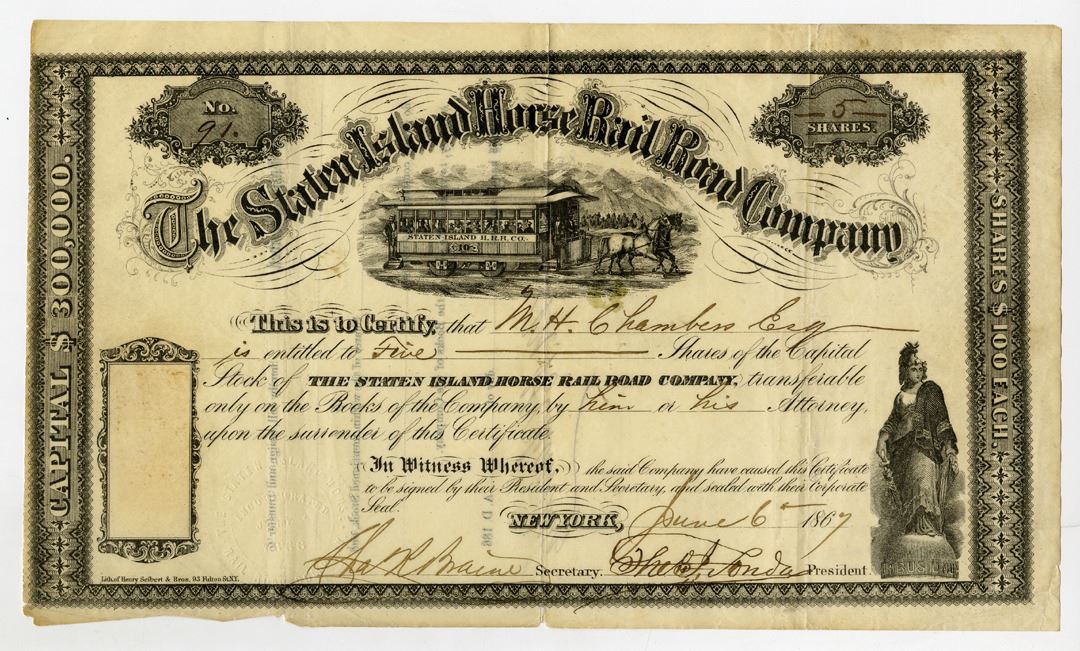 No.
91.
5
SHARES.
The Staten Island Horse Rail Road Company
STATEN ISLAND H.R.R. CO.
10
CAPITAL $ 300,000.
SHARES $100 EACH.
This is to Certify, that M. H. Chambers Esq
is entitled to Five Shares of the Capital
Stock of THE STATEN ISLAND HORSE RAIL ROAD COMPANY, transferable
only on the Books of the Company, by him or his Attorney,
upon the surrender of this Certificate.
In Witness Whereof, the said Company have caused this Certificate
to be signed by their President and Secretary, and sealed with their Corporate
Seal.
NEW YORK, June 6 1867
Secretary. President.
Lith. of Henry Seibert & Bros. 93 Fulton St. N.Y.